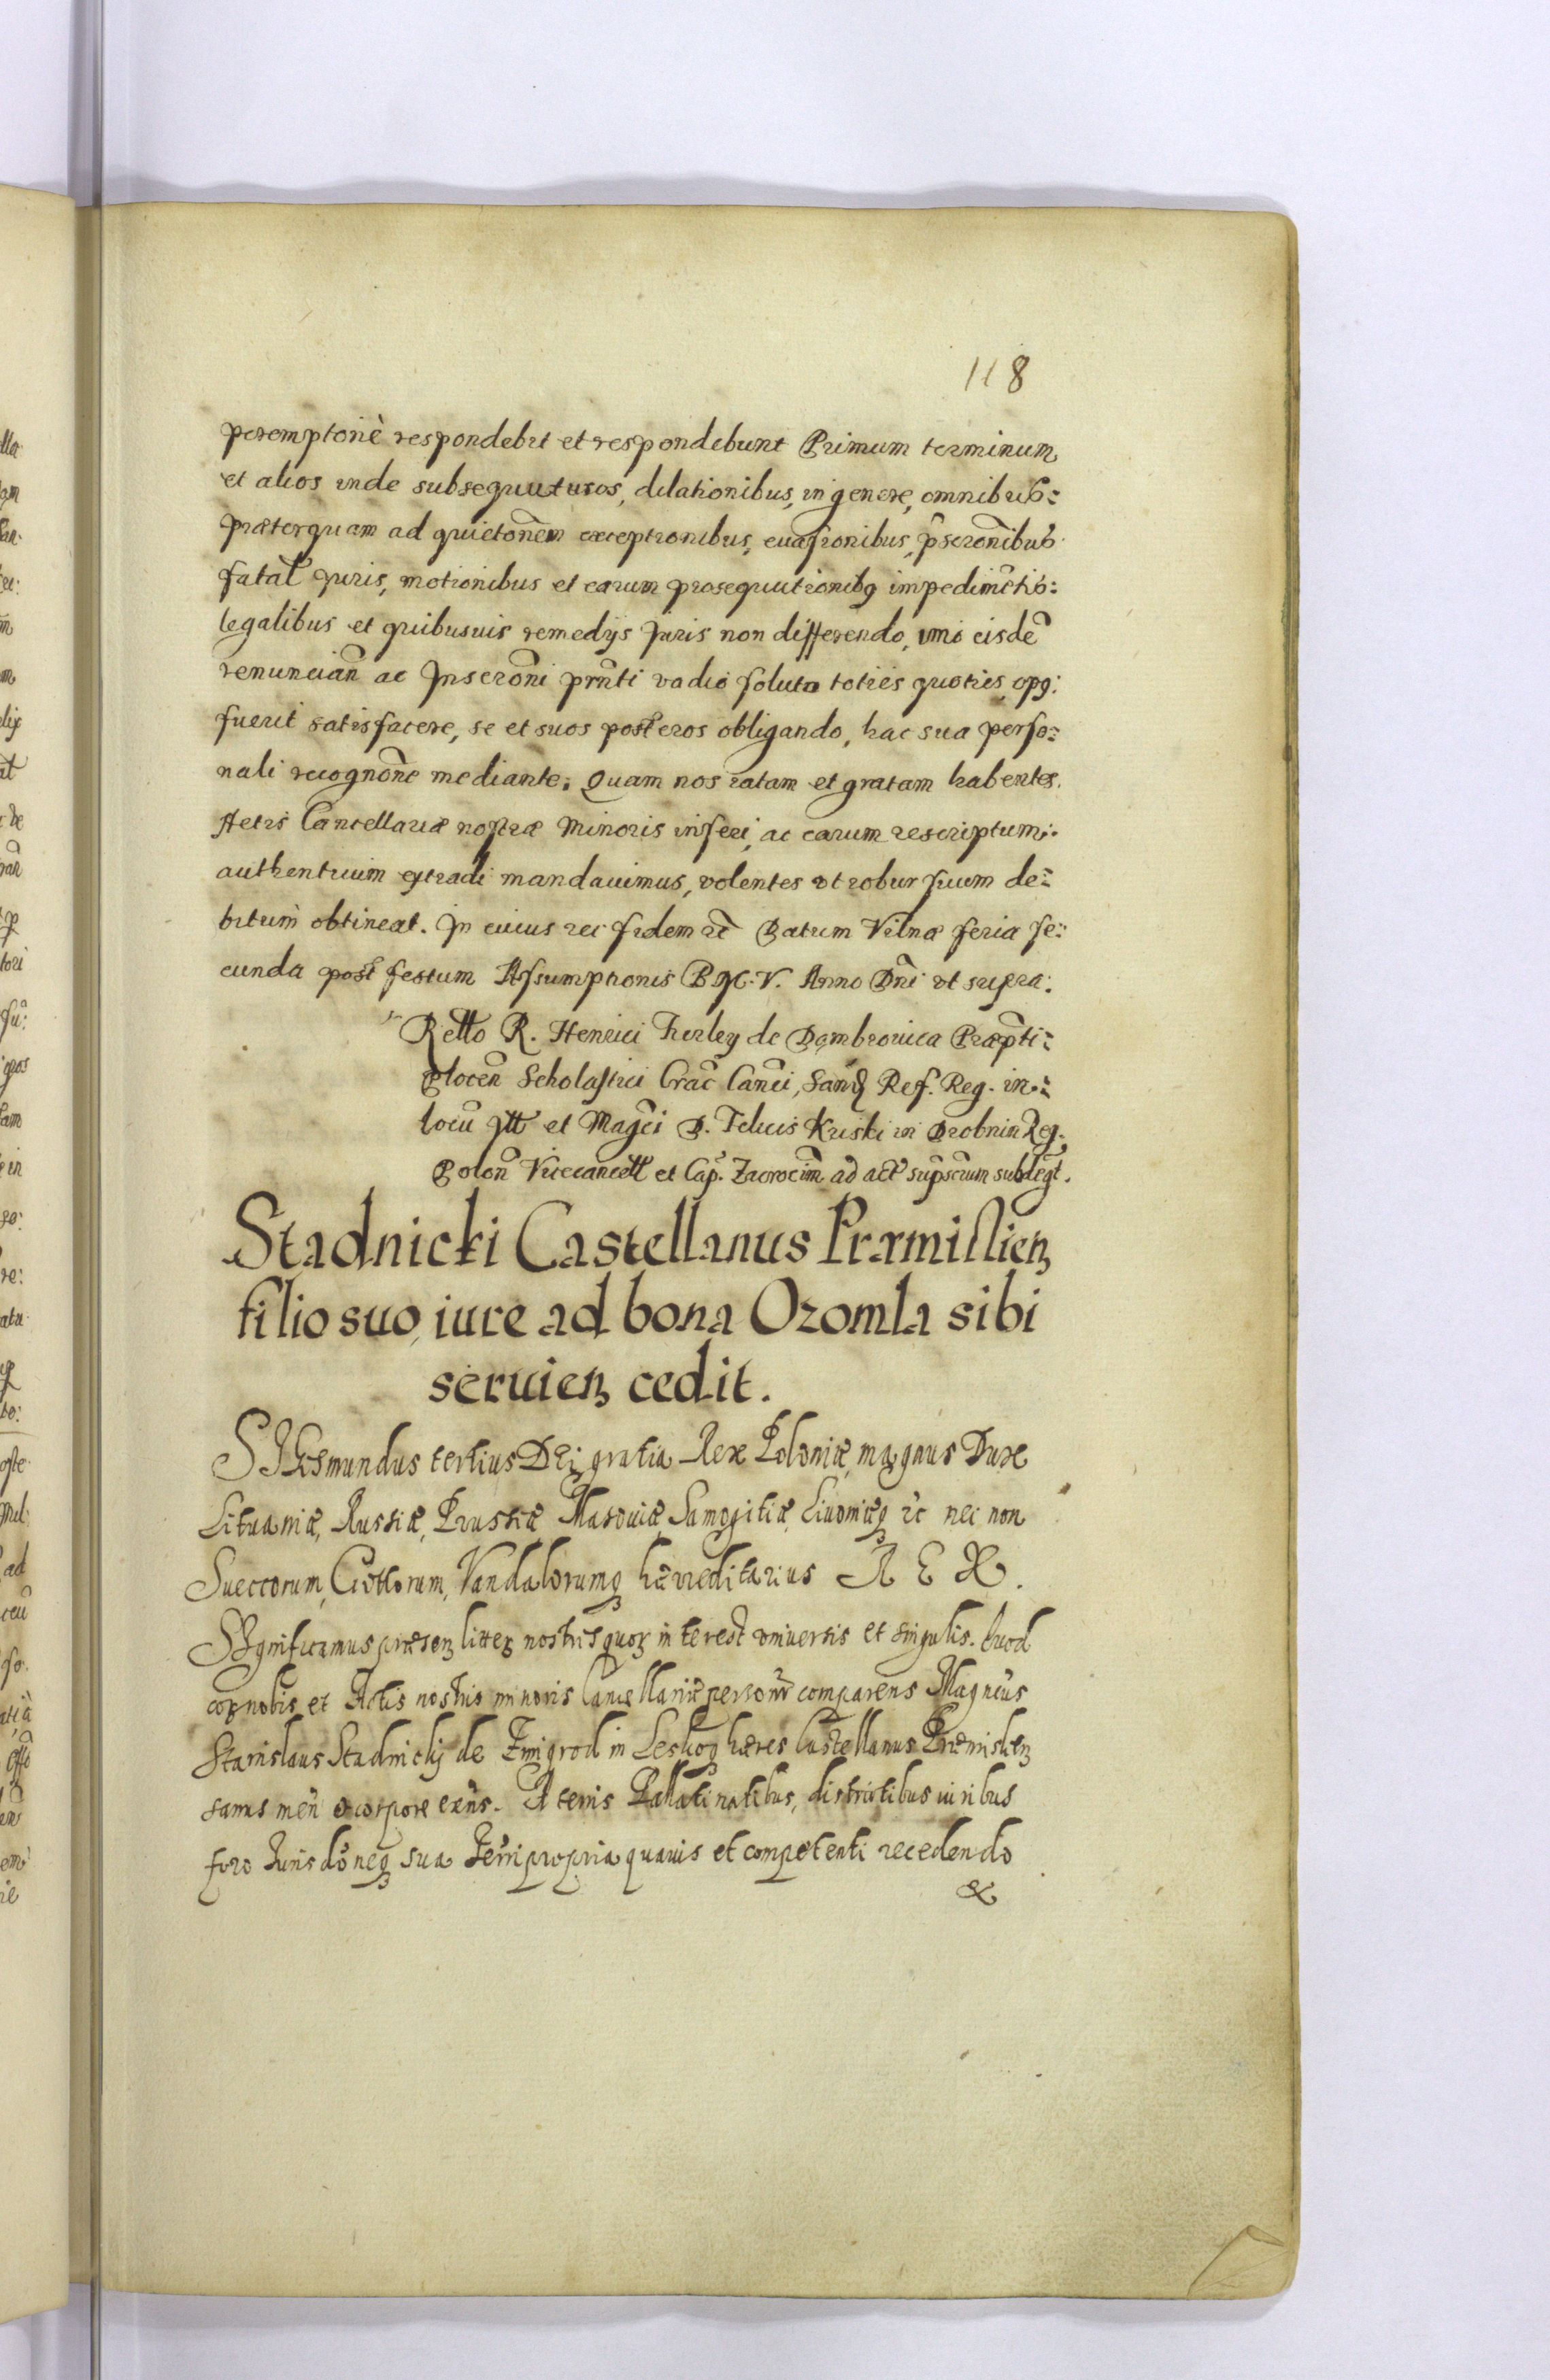 118
peremptoriè respondebit et respondebunt Primum terminum
et alios inde subsequuturos, dilationibus, in genere, omnibus:
præterquam ad quietoñem exceptionibus, euasionibus, p̃scronibus
fatal Juris, motionibus et earum prosequutionibq impedim̃tis:
legalibus et quibusuis remedijs Juris non differendo, imò eisdẽ
renunciañ ac Inscroñi pr̃nti vadio soluto toties quoties, opq:
fuerit satisfacere, se et suos posteros obligando, hac sua perso:
nali recognoñe mediante; Quam nos ratam et gratam habentes.
Actis Cancellariæ nostræ Minoris inseri, ac earum rescriptum:
authenticum extradi mandauimus, volentes vt robur suum de:
bitum obtineat. In cuius rei fidem ac̃ Datum Vilnæ feria se:
cunda post festum Assumptionis B. M. V. Anno Dñi vt supra:
Retto R. Henrici Firley de Dąmbrouica Præpti:
Plocen̄ Scholastici Crac̃ Canci, Sand Ref. Reg. in:
locũ Ill et Magci D. Felicis Kriski in Drobnin Reg.
Polon̄ Vicecancell et Cap. Zacrocim̃ ad act sup̃scrium subdegt.
Stadnicki Castellanus Præmislien
filio suo iure ad bona Ozomla sibi
seruien cedit.
SIGismundus tertius DEi gratia Rex Poloniæ, magnus Dux
Lituaniæ, Russiæ, Prussiæ Masouiæ, Samogitiæ, Liuoniæq ac nec non
Sueccorum, Gottorum, Vandalorumq hæreditarius REX.
SIgnificamus præsen litteris nostris quor interest vniuersis et singulis. Quod
cor nobis et Actis nostris minoris Cancellariæ personr comparens Magncus
Stanislaus Stadnicky de Zmigrod in Leskoq hæres Castellanus Præmislien
sanus men̄ et corpore exn̄s. A terris Pallatinatibus, districtibus iuribus
foro Jurisdōneq sua Terri propria quauis et competenti recedendo
&